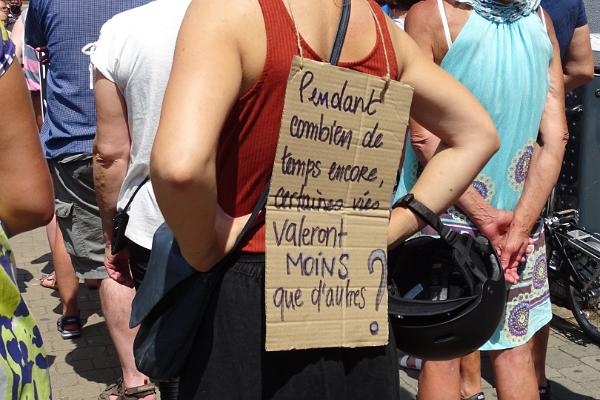 Pendant
combien de
temps encore,
certaines vies
valeront
MOINS
que d'autres ?